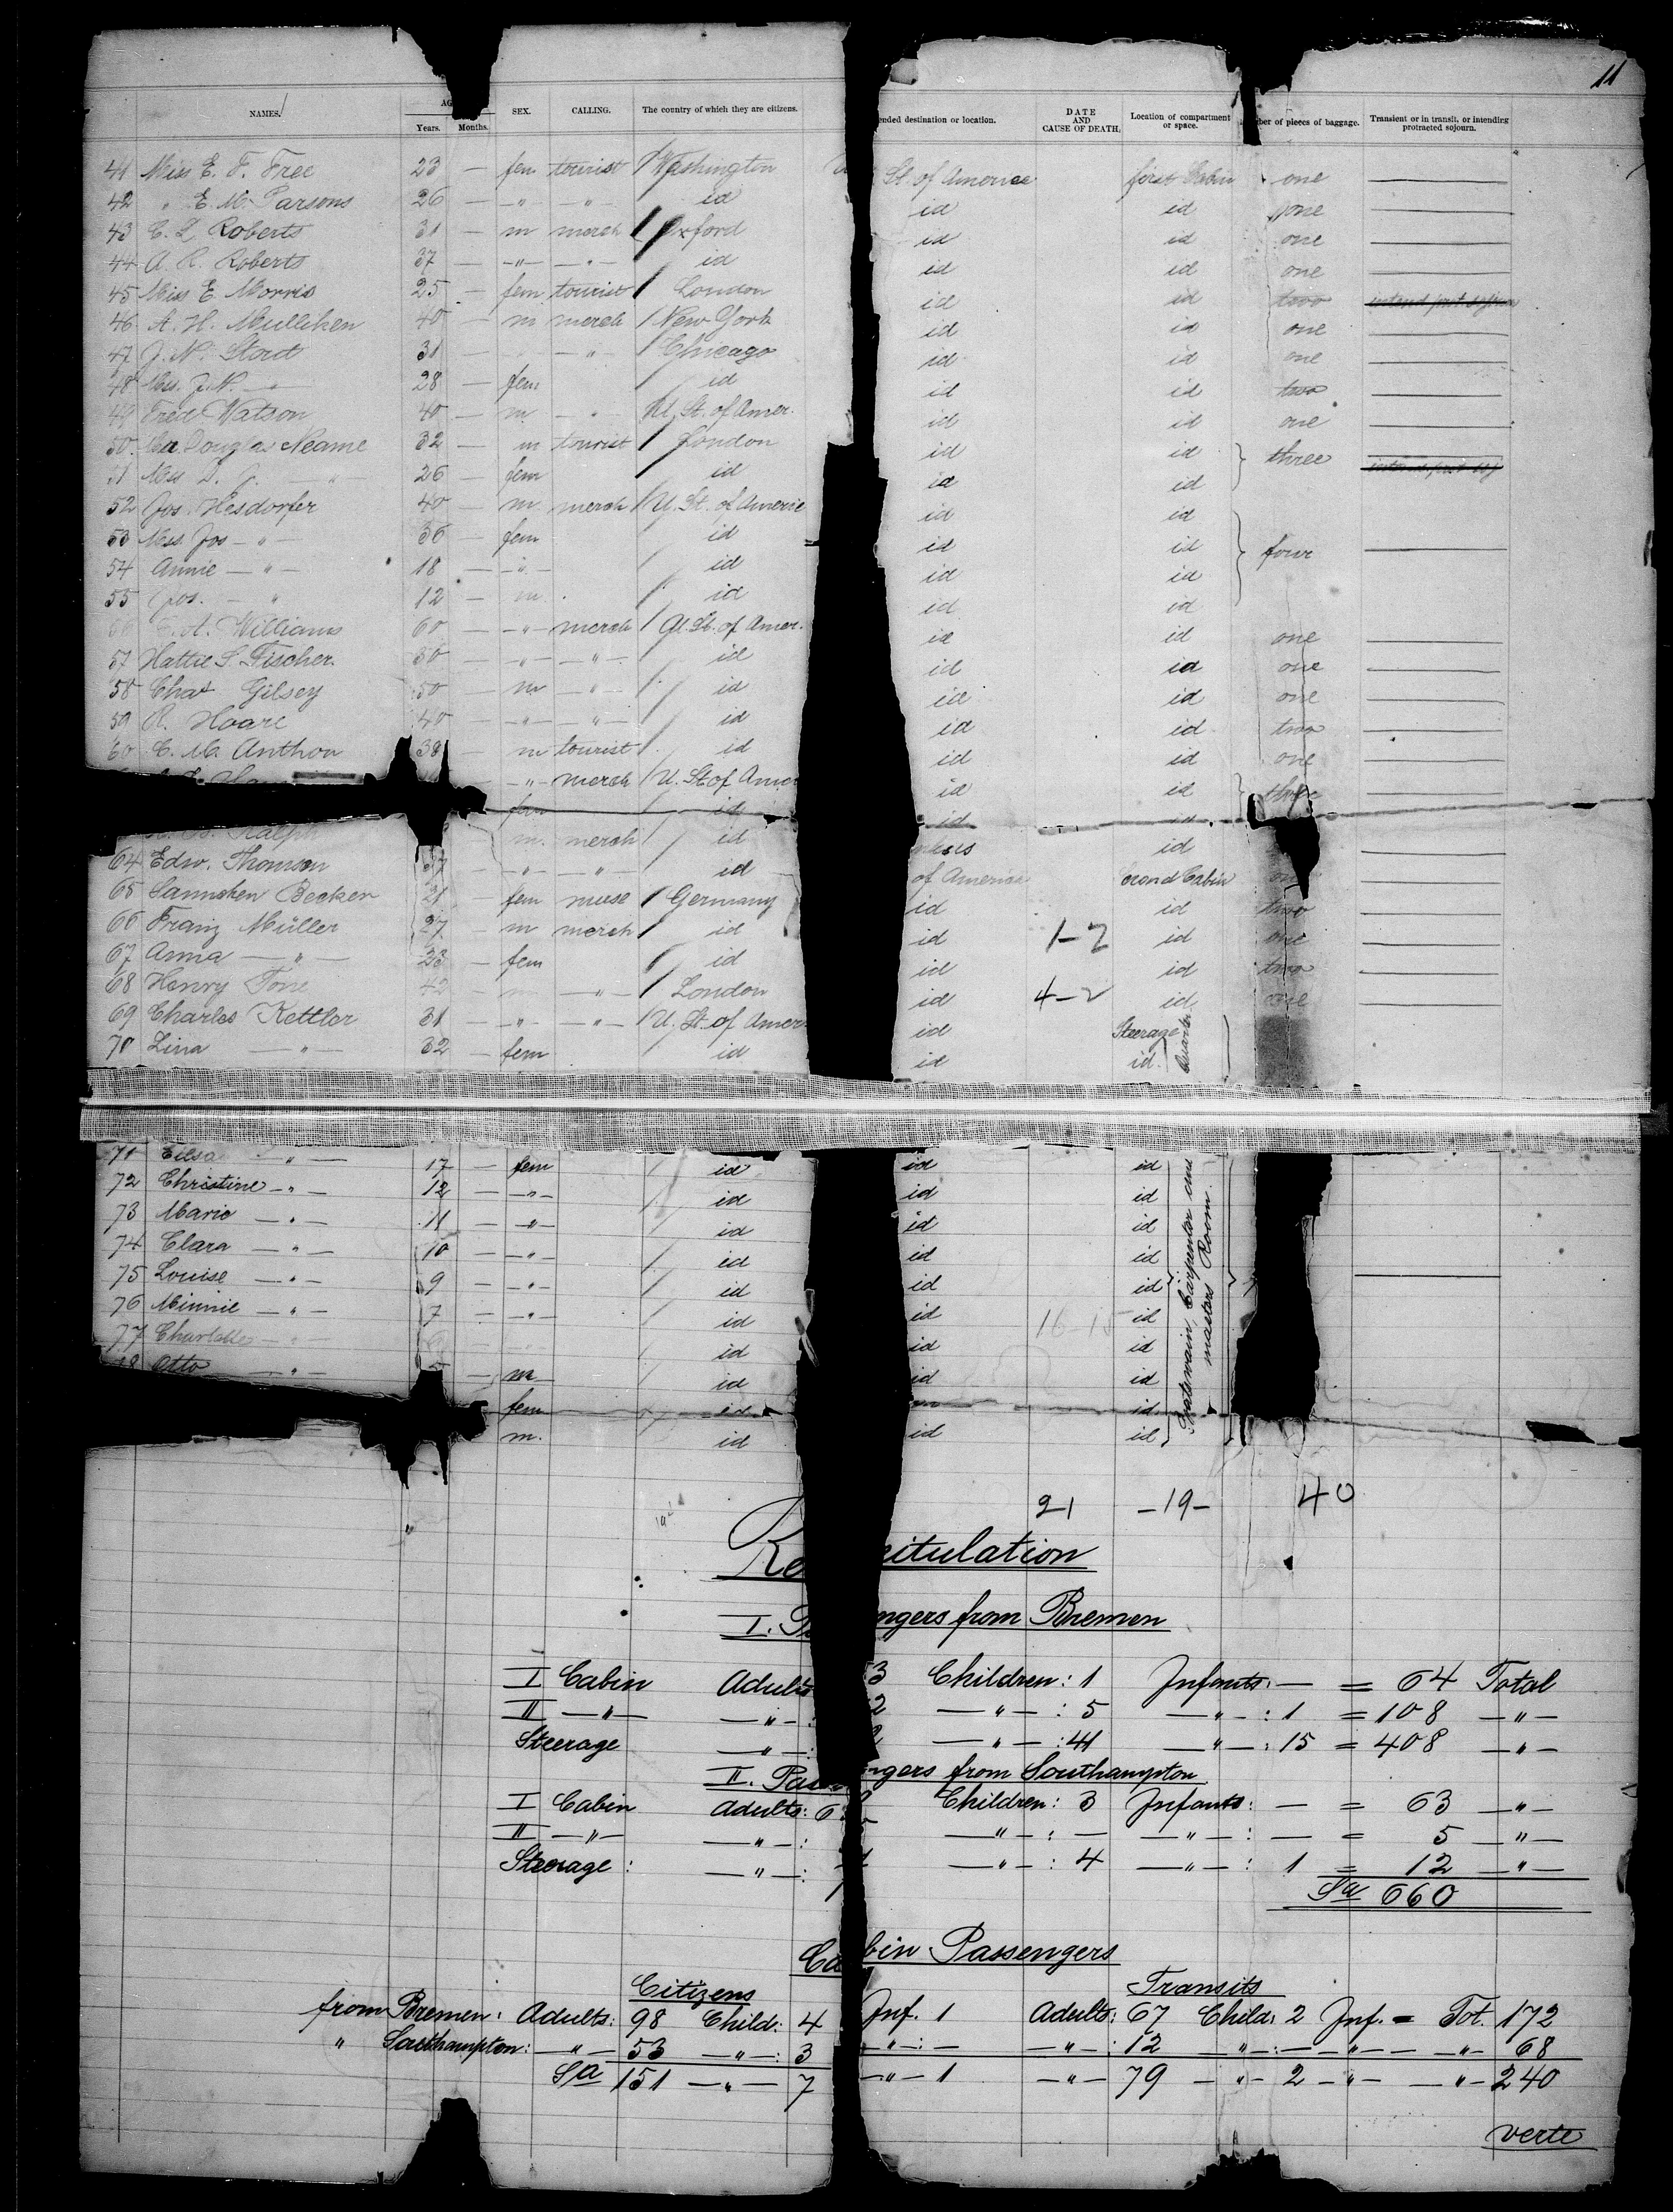 11
NAMES. AG Years. Months. SEX. CALLING. The country of which they are citizens. nded destination or location. DATE AND CAUSE OF DEATH, Location of compartment or space. ber of pieces of baggage. Transient or in transit, or intending protracted sojourn.
41 Miss E. F. Free 23 — fem tourist Washington St. of America first Cabin one
42 " E. M. Parsons 26 — " — " — id id id one
43 C. L. Roberts 31 — m merch Oxford id id one
44 A. R. Roberts 37 — " — " — id id id one
45 Miss E. Morris 25 — fem tourist London id id two
46 A. H. Mulliken 40 — m merch New York id id one
47 J. N. Stout 31 — " — Chicago id id one
48 Mrs. J. N. — " 28 — fem id id id two
49 Fred Watson 40 — m — " U. St. of Amer. id id one
50. Douglas Neame 32 — m tourist London id id three
51 Mrs D. J. — " 26 — fem id id id
52 Jos. Hesdorfer 40 — m merch U. St. of Americ id id
53 Mrs Jos — " — 36 — fem id id id four
54 Annie — " — 18 — " — id id id
55 Jos. — " 12 — m id id id
56 E. A. Williams 60 — " — merch U. St. of Amer. id id one
57 Hattie S. Fischer. 30 — " — " — id id id one
58 Chas Gilsey 50 — m — " — id id id one
59 R. Hoare 40 — " — " — id id id two
60 C. M. Anthon 38 — m tourist id id id one
— " — merch U. St. of Amer id id three
fem id id id
Ralph m. merch id id
64 Edw. Thomson 37 — " — " — id of America cond Cabin one
65 Sannchen Becker 21 — fem nuise Germany id id two
66 Franz Müller 27 — m merch id id 1-2 id one
67 Anna — " — 23 — fem id id id two
68 Henry Tone 42 — m — " — London id 4-2 id one
69 Charles Kettler 31 — " — " — U. St. of Amer id Steerage
70 Lina — " — 32 — fem id id id.
71 Eilsa — " — 17 — fem id id id
72 Christine — " — 12 — " — id id id
73 Marie — " — 11 — " — id id id
74 Clara — " — 10 — " — id id id
75 Louise — " — 9 — " — id id id
76 Minnie — " — 7 — " — id id 16-15 id
77 Charlotte — " — id id id
78 Otto — " — m id id id
fem id id
m. id id id
Boatswain, Carpenter and
masters Room.
Quarter
21 -19- 40
Re itulation
I. Pa ngers from Bremen
I Cabin Adults 3 Children: 1 Infants: — = 64 Total
II — " — — " — : 2 — " — : 5 — " — : 1 = 108 — " —
Steerage — " — : — " — : 41 — " — : 15 = 408 — " —
II. Pass ngers from Southampton
I Cabin Adults: 6 Children: 3 Infants: — = 63 — " —
II — " — — " — : — " — : — — " — : — = 5 — " —
Steerage: — " — : — " — : 4 — " — : 1 = 12 — " —
Sa 660
Ca bin Passengers
Citizens Transits
from Bremen: Adults: 98 Child: 4 Inf. 1 Adults: 67 Child: 2 Inf. = Tot. 172
" Southampton: — " — 53 — " — : 3 — " — : — — " — : 12 — " — : — — " — — — " — 68
Sa 151 — " — 7 — " — 1 — " — 79 — " — 2 — " — — " — 240
verte